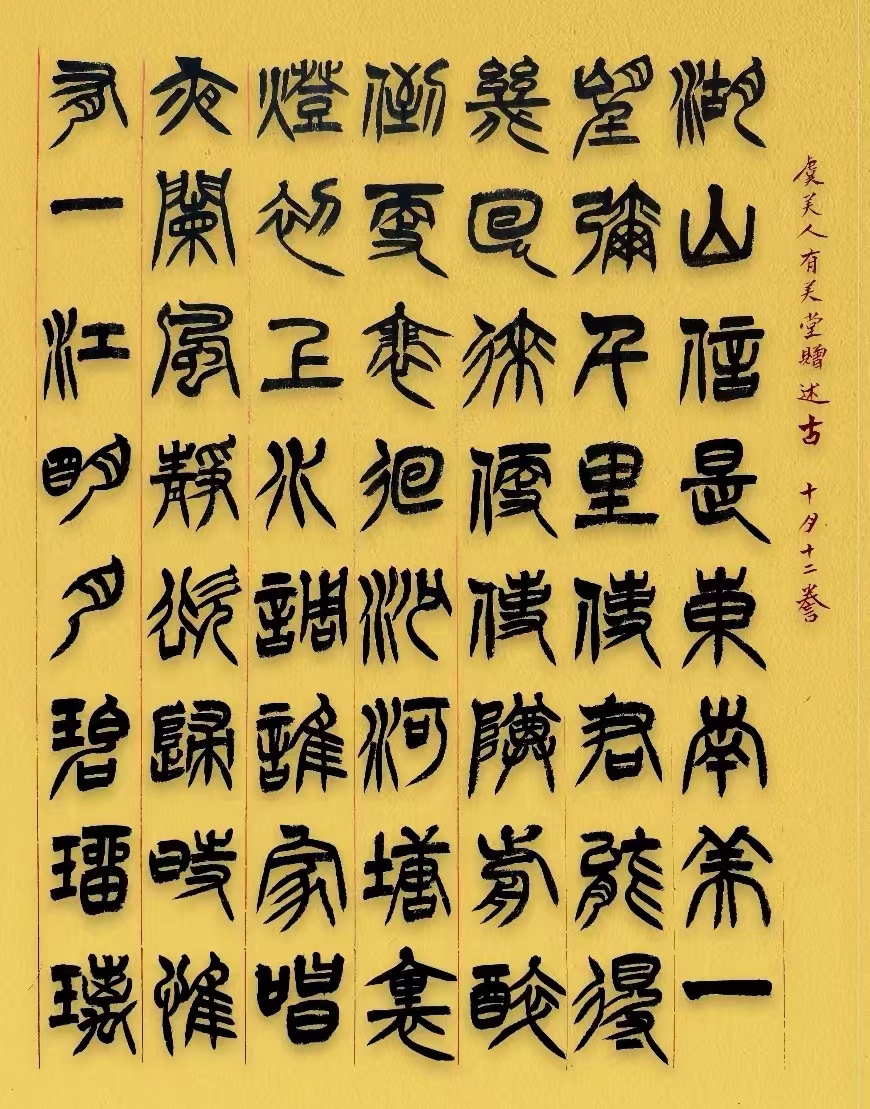 虞美人有美堂贈述古 十月十二謄
湖山信是東南美一
望彌千里使君能得
幾回來便使樽前醉
倒更裴徊沙河塘裏
燈初上水調誰家唱
夜闌風靜欲歸時惟
有一江明月碧瑠璃